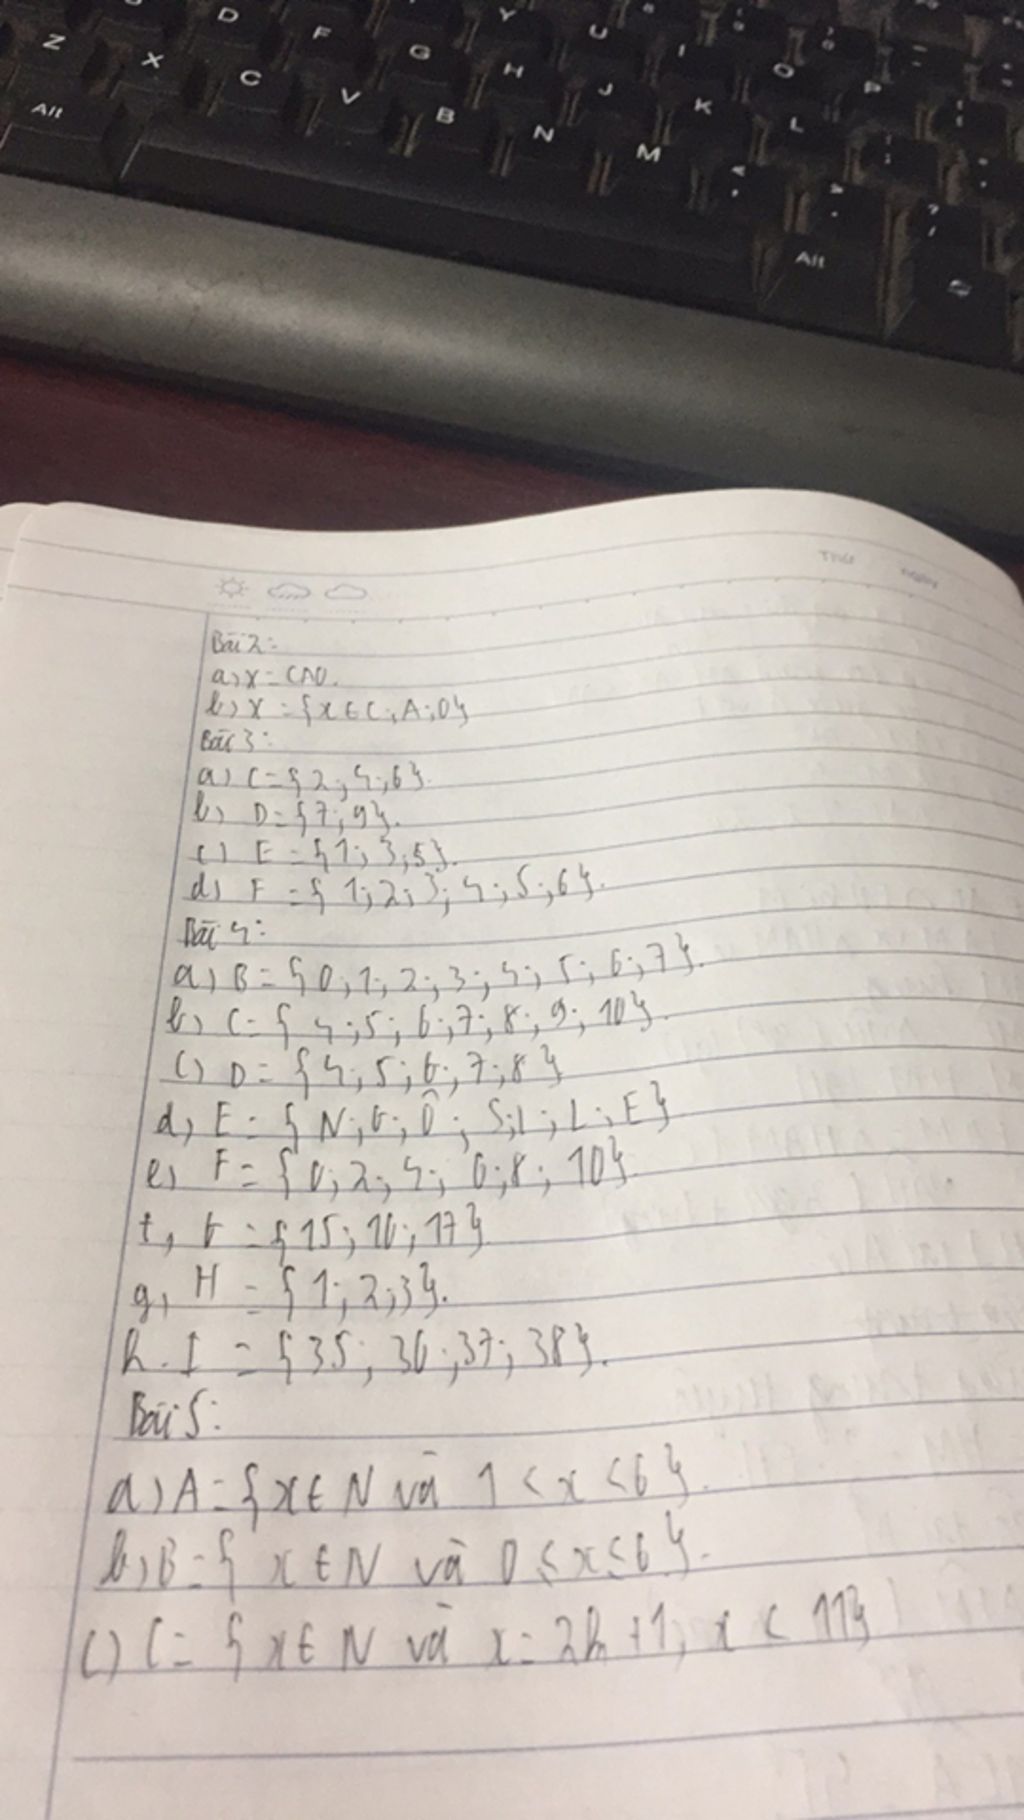 D F G Y U I
Z X C V B H J K O P
Alt N M L
Alt
Bài 2:
a) X = CAO.
b) X = {x ∈ C; A; O}
Bài 3:
a) C = {2; 4; 6}.
b) D = {7; 9}.
c) E = {1; 3; 5}.
d) F = {1; 2; 3; 4; 5; 6}.
Bài 4:
a) B = {0; 1; 2; 3; 4; 5; 6; 7}.
b) C = {4; 5; 6; 7; 8; 9; 10}.
c) D = {4; 5; 6; 7; 8}
d) E = {N; G; Ô; S; I; L; E}
e) F = {0; 2; 4; 6; 8; 10}.
f, G = {15; 16; 17}
g, H = {1; 2; 3}.
h. I = {35; 36; 37; 38}.
Bài 5:
a) A = {x ∈ N và 1 < x < 6}.
b) B = {x ∈ N và 0 ≤ x ≤ 6}.
c) C = {x ∈ N và x = 2k + 1, x < 11}